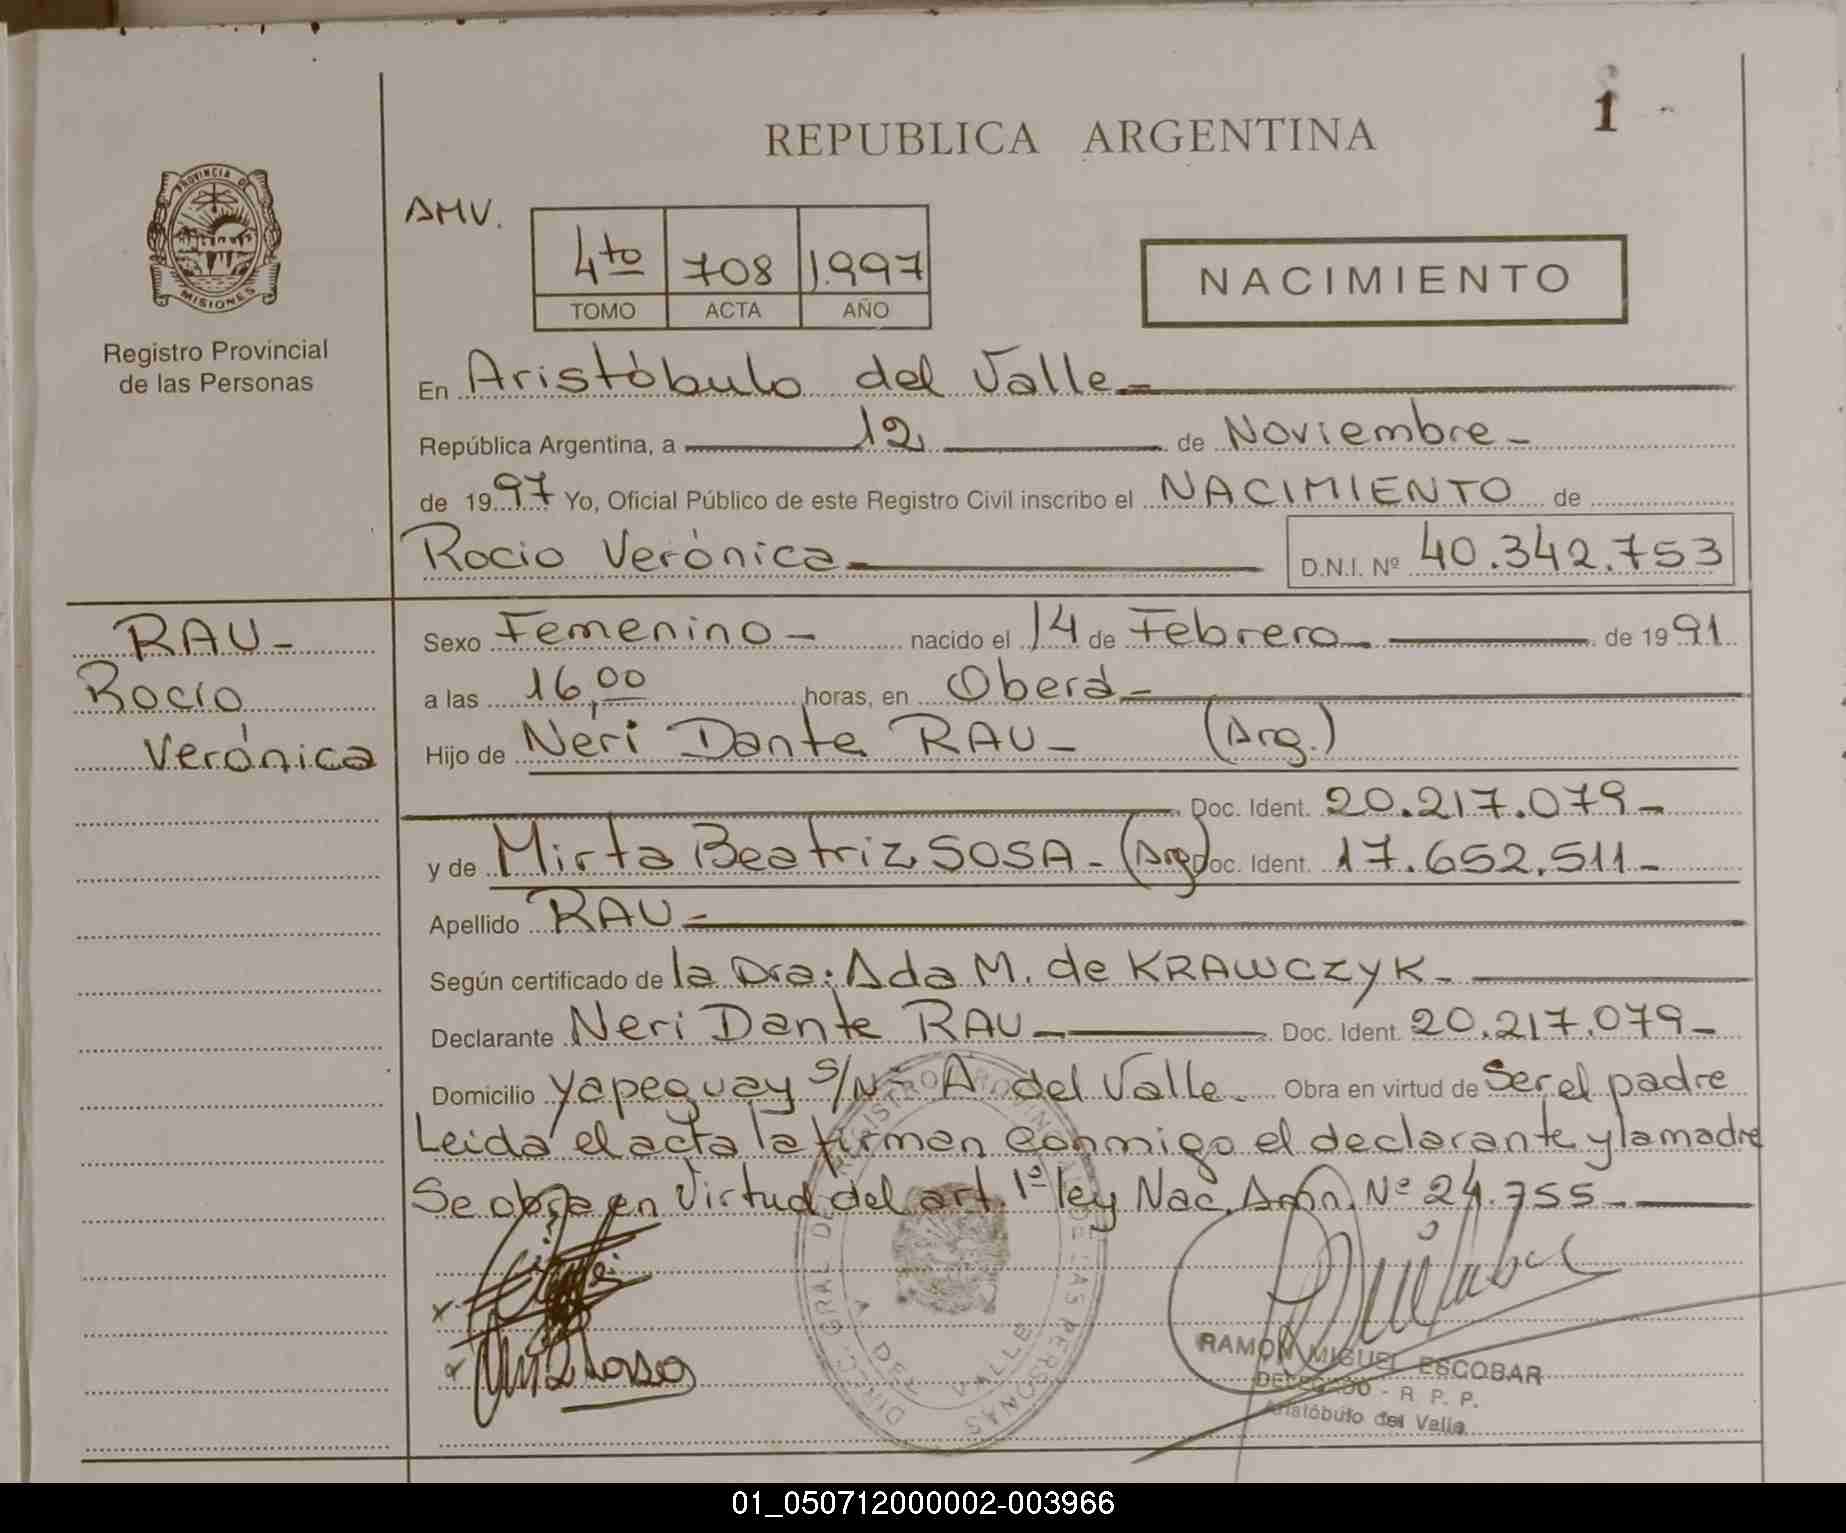 1
REPUBLICA ARGENTINA
PROVINCIA DE
MISIONES
Registro Provincial
de las Personas
AMV.
4to 708 1.997
TOMO ACTA AÑO
NACIMIENTO
En Aristóbulo del Valle
República Argentina, a 12 de Noviembre
de 1997 Yo, Oficial Público de este Registro Civil inscribo el NACIMIENTO de
Rocio Verónica D.N.I. Nº 40.342.753
RAU
Rocío
Verónica
Sexo Femenino nacido el 14 de Febrero de 1991
a las 16,00 horas, en Oberá
Hijo de Neri Dante RAU (Arg.)
Doc. Ident. 20.217.079
y de Mirta Beatriz SOSA (Arg) Doc. Ident. 17.652.511
Apellido RAU
Según certificado de la Dra: Ada M. de KRAWCZYK
Declarante Neri Dante RAU Doc. Ident. 20.217.079
Domicilio Yapeguay s/Nº A del Valle Obra en virtud de Ser el padre
Leida el acta la firman conmigo el declarante y la madre
Se obra en Virtud del art. 1º ley Nac. Amn. Nº 24.755
DIREC. GRAL DEL REGISTRO PROVINCIAL DE LAS PERSONAS
A DEL VALLE
RAMON MIGUEL ESCOBAR
DELEGADO - R. P. P.
Aristóbulo del Valle
01_050712000002-003966